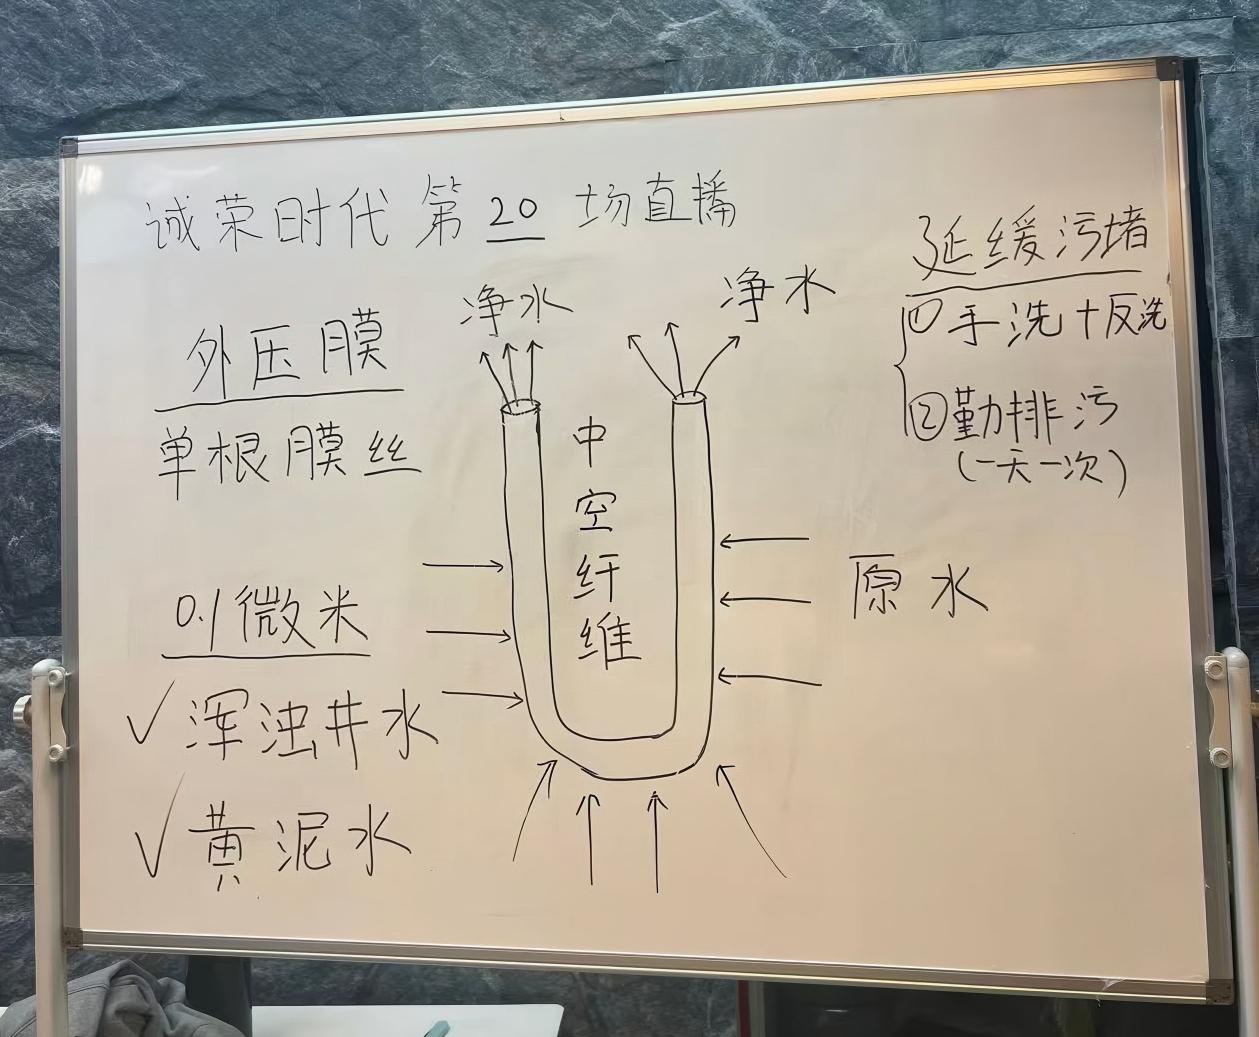 诚荣时代第20场直播
外压膜
单根膜丝
0.1微米
✓浑浊井水
✓黄泥水
净水
净水
中
空
纤
维
原水
延缓污堵
①手洗+反洗
②勤排污
(一天一次)